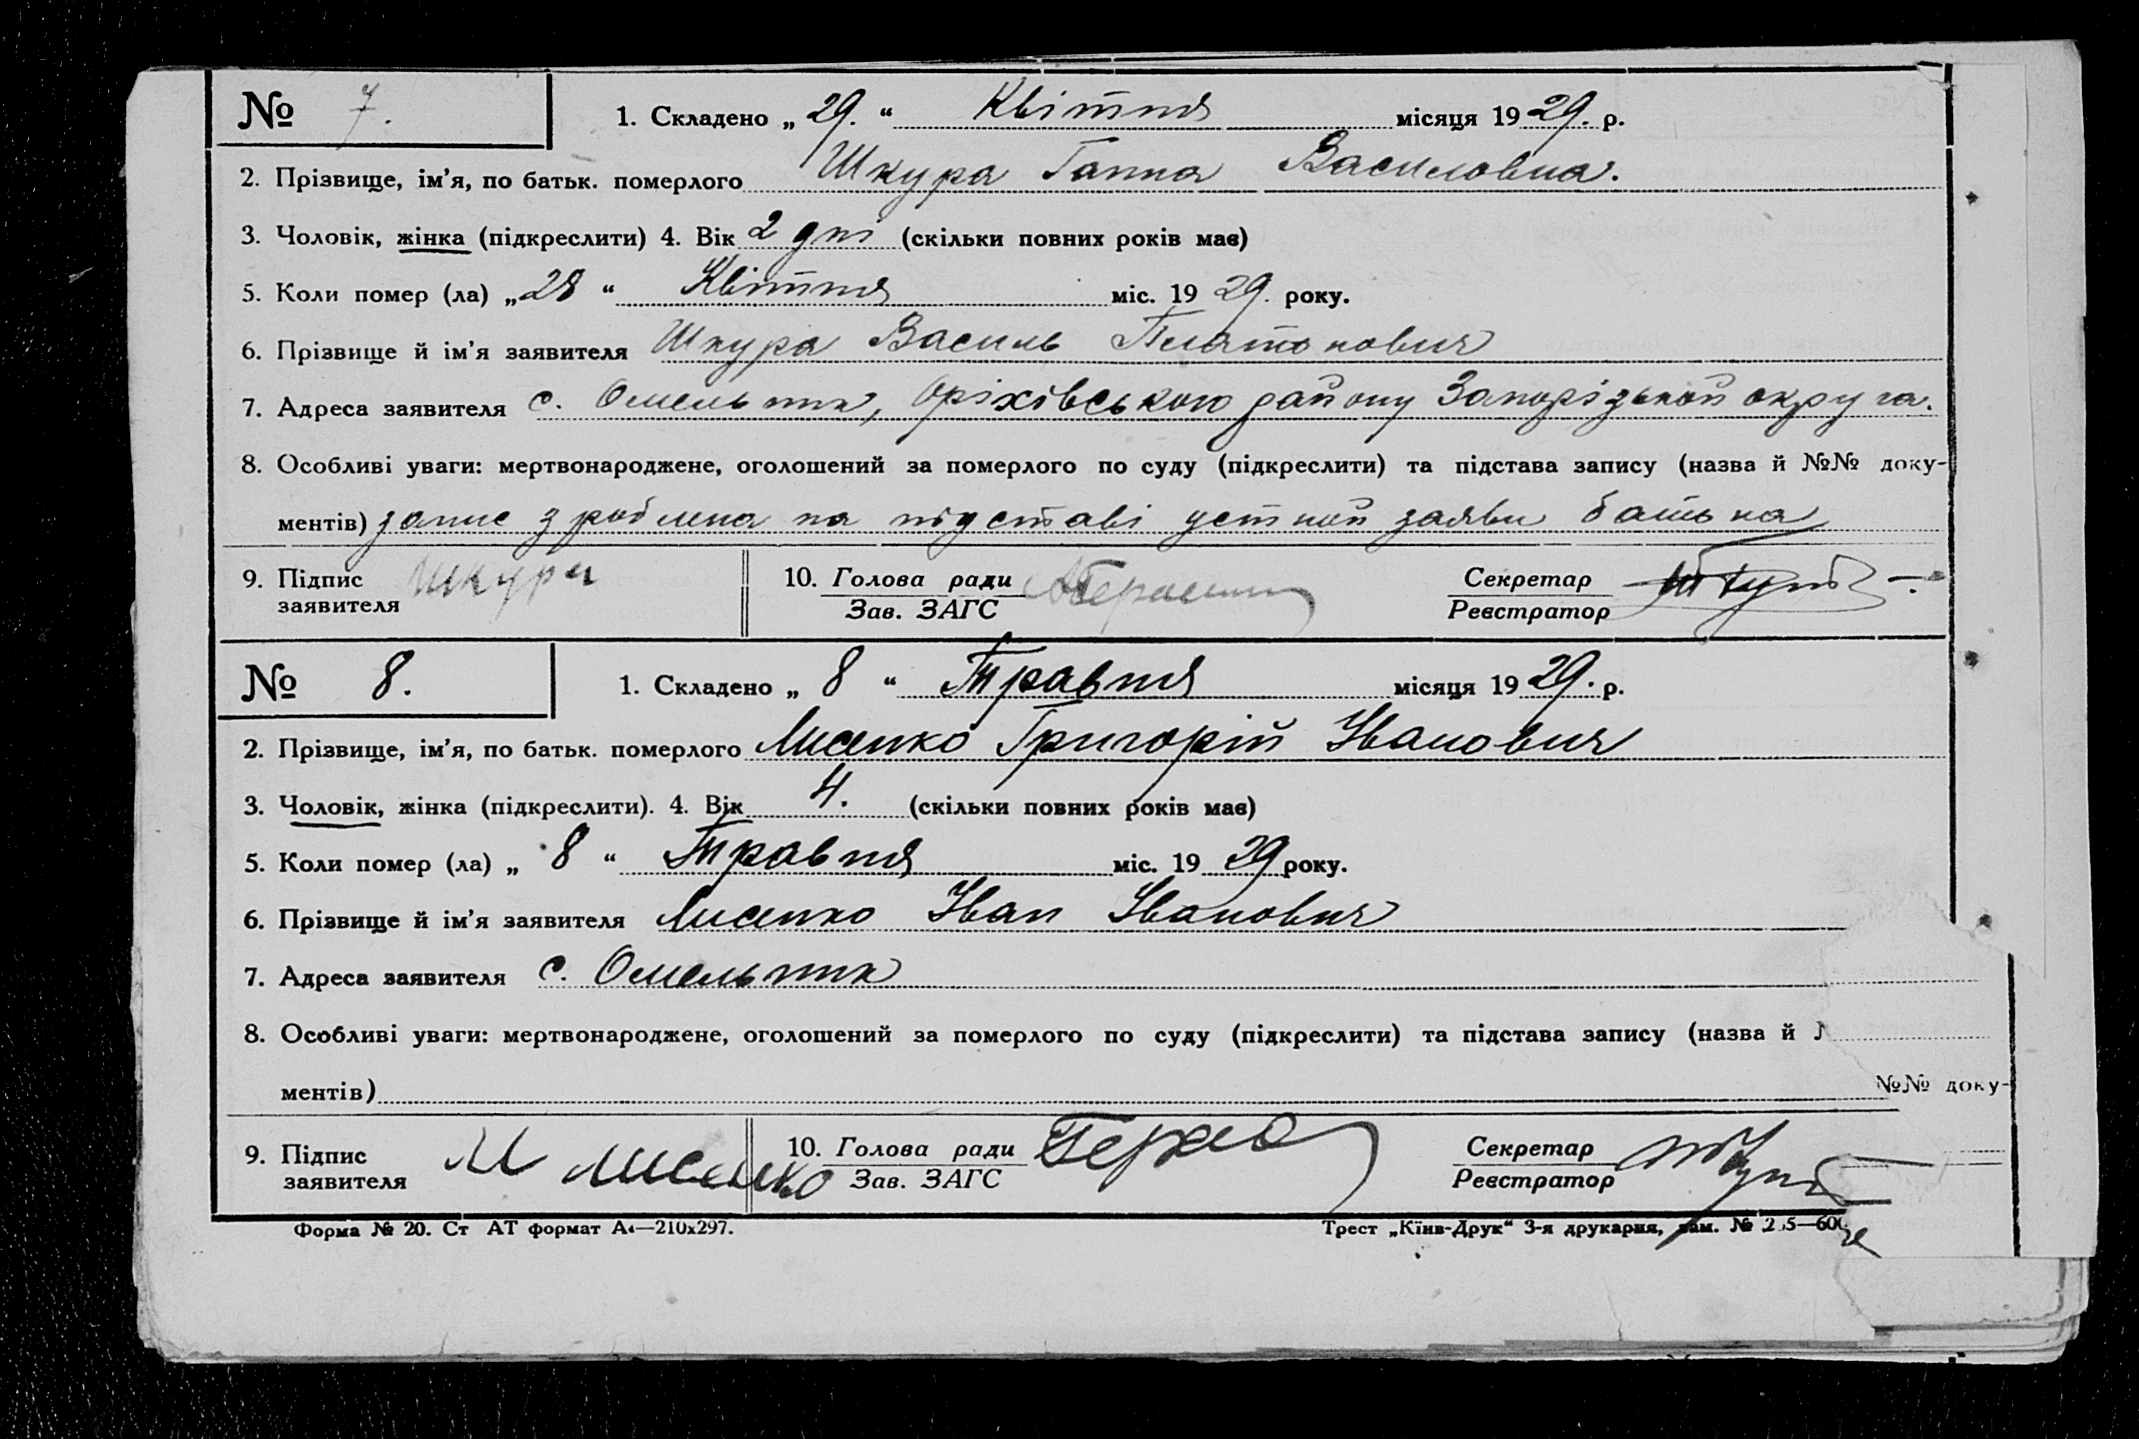 № 7. 1. Складено „ 29. “ Квітня місяця 1929. р.
2. Прізвище, ім'я, по батьк. померлого Шкура Ганна Василовна.
3. Чоловік, жінка (підкреслити) 4. Вік 2 дні (скільки повних років має)
5. Коли помер (ла) „28 “ Квітня міс. 19 29. року.
6. Прізвище й ім'я заявителя Шкура Василь Платонович
7. Адреса заявителя с. Омельник, Оріхівського району Запорізькой округа.
8. Особливі уваги: мертвонароджене, оголошений за померлого по суду (підкреслити) та підстава запису (назва й №№ доку-
ментів) запис зроблена на підставі устной заяви батька
9. Підпис заявителя Шкура 10. Голова ради Секретар
Зав. ЗАГС Реєстратор
№ 8. 1. Складено „ 8 “ Травня місяця 1929. р.
2. Прізвище, ім'я, по батьк. померлого Лисенко Григорій Іванович
3. Чоловік, жінка (підкреслити). 4. Вік 4. (скільки повних років має)
5. Коли помер (ла) „ 8 “ Травня міс. 19 29 року.
6. Прізвище й ім'я заявителя Лисенко Іван Іванович
7. Адреса заявителя с. Омельник
8. Особливі уваги: мертвонароджене, оголошений за померлого по суду (підкреслити) та підстава запису (назва й
ментів) №№ доку-
9. Підпис заявителя И Лисенко 10. Голова ради Секретар
Зав. ЗАГС Реєстратор
Форма № 20. Ст АТ формат А4—210x297. Трест „Київ-Друк“ 3-я друкарня, зам. №